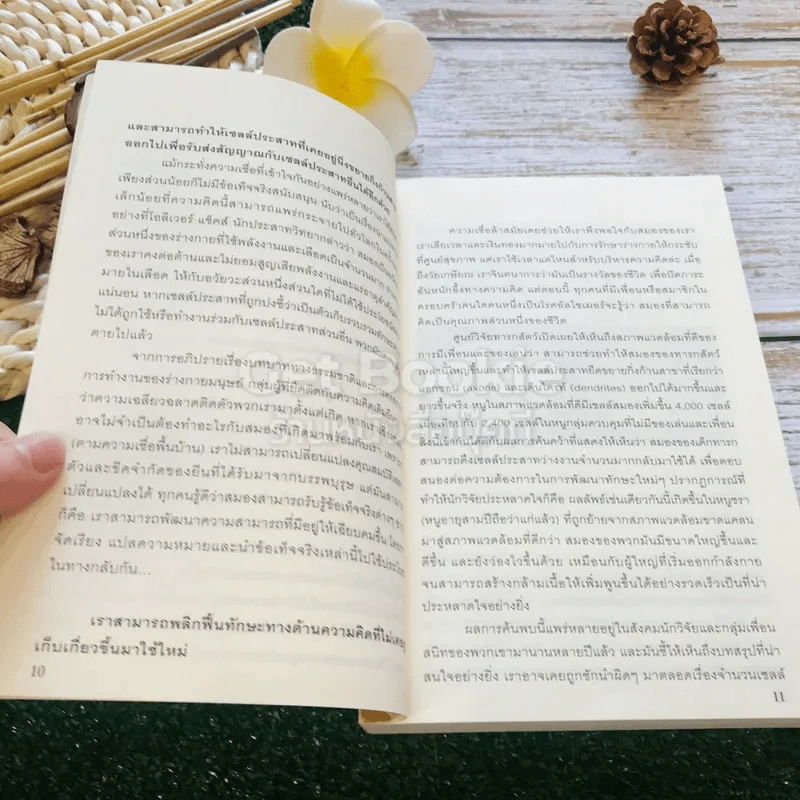 และสามารถทำให้เซลล์ประสาทที่เคยอยู่นิ่งขยายกิ่งก้าน
ออกไปเพื่อรับส่งสัญญาณกับเซลล์ประสาทอื่นได้อีกด้วย
แม้กระทั่งความเชื่อที่เข้าใจกันอย่างแพร่หลายว่า
เพียงส่วนน้อยก็ไม่มีข้อเท็จจริงสนับสนุน นับว่าเป็นเรื่อง
เล็กน้อยที่ความคิดนี้สามารถแพร่กระจายไปทั่วโลก
อย่างที่โอลิเวอร์ แซ็คส์ นักประสาทวิทยากล่าวว่า สมองเป็น
ส่วนหนึ่งของร่างกายที่ใช้พลังงานและเลือดเป็นจำนวนมาก
ของเราคงต่อต้านและไม่ยอมสูญเสียพลังงานและแร่ธาตุ
มายในเลือด ให้กับอวัยวะส่วนหนึ่งส่วนใดที่ไม่ได้ใช้ประโยชน์
แน่นอน หากเซลล์ประสาทที่ถูกบ่งชี้ว่าเป็นตัวเก็บรวบรวมทักษะ
ไม่ได้ถูกใช้หรือทำงานร่วมกับเซลล์ประสาทส่วนอื่น พวกมัน
ตายไปแล้ว
จากการอภิปรายเรื่องบทบาททางธรรมชาติและ
การทำงานของร่างกายมนุษย์ กลุ่มผู้ที่ยึดติดกับความคิดเดิม
ว่าความเฉลียวฉลาดติดตัวพวกเรามาตั้งแต่เกิด พวกเราจึง
อาจไม่จำเป็นต้องทำอะไรกับสมองที่เกิดมาพร้อมกับเรา เพราะ
(ตามความเชื่อพื้นบ้าน) เราไม่สามารถเปลี่ยนแปลงคุณสมบัติ
ตัวและขีดจำกัดของยีนที่ได้รับมาจากบรรพบุรุษ แต่มันสามารถ
เปลี่ยนแปลงได้ ทุกคนรู้ดีว่าสมองสามารถรับรู้ข้อเท็จจริงต่างๆ
ก็คือ เราสามารถพัฒนาความสามารถที่มีอยู่ให้เฉียบคมขึ้น
จัดเรียง แปลความหมายและนำข้อเท็จจริงเหล่านี้ไปใช้
ในทางกลับกัน...
เราสามารถพลิกฟื้นทักษะทางด้านความคิดที่ไม่เคย
เก็บเกี่ยวขึ้นมาใช้ใหม่
10
ความเชื่อล้าสมัยเคยช่วยให้เราพึงพอใจกับสมองของเรา
เราเสียเวลาและเงินทองมากมายไปกับการรักษาร่างกายให้กระชับ
ที่ศูนย์สุขภาพ แต่เราใช้เวลาแค่ไหนสำหรับบริหารความคิดล่ะ เมื่อ
ถึงวัยเกษียณ เราจินตนาการว่ามันเป็นรางวัลของชีวิต เพื่อปิดภาระ
อันหนักอึ้งทางความคิด แต่ตอนนี้ ทุกคนที่มีเพื่อนหรือสมาชิกใน
ครอบครัวคนใดคนหนึ่งเป็นโรคอัลไซเมอร์จะรู้ว่า สมองที่สามารถ
คิดเป็นคุณภาพส่วนหนึ่งของชีวิต
ศูนย์วิจัยทารกสัตว์เปิดเผยให้เห็นถึงสภาพแวดล้อมที่ดีของ
การมีเพื่อนและของเล่นว่า สามารถช่วยทำให้สมองของทารกสัตว์
เหล่านี้ใหญ่ขึ้นและทำให้เซลล์ประสาทยืดขยายกิ่งก้านสาขาที่เรียกว่า
แอกซอน (axons) และเดนไดรท์ (dendrites) ออกไปได้มากขึ้นและ
ยาวขึ้นจริง หนูในสภาพแวดล้อมที่ดีมีเซลล์สมองเพิ่มขึ้น 4,000 เซลล์
เมื่อเทียบกับ 2,400 เซลล์ในหนูกลุ่มควบคุมที่ไม่มีของเล่นและเพื่อน
สิ่งนี้เข้ากันได้ดีกับผลการค้นคว้าที่แสดงให้เห็นว่า สมองของเด็กทารก
สามารถดึงเซลล์ประสาทว่างงานจำนวนมากกลับมาใช้ได้ เพื่อตอบ
สนองต่อความต้องการในการพัฒนาทักษะใหม่ๆ ปรากฏการณ์ที่
ทำให้นักวิจัยประหลาดใจก็คือ ผลลัพธ์เช่นเดียวกันนี้เกิดขึ้นในหนูชรา
(หนูอายุสามปีถือว่าแก่แล้ว) ที่ถูกย้ายจากสภาพแวดล้อมขาดแคลน
มาสู่สภาพแวดล้อมที่ดีกว่า สมองของพวกมันมีขนาดใหญ่ขึ้นและ
ดีขึ้น และยังว่องไวขึ้นด้วย เหมือนกับผู้ใหญ่ที่เริ่มออกกำลังกาย
จนสามารถสร้างกล้ามเนื้อให้เพิ่มพูนขึ้นได้อย่างรวดเร็วเป็นที่น่า
ประหลาดใจอย่างยิ่ง
ผลการค้นพบนี้แพร่หลายอยู่ในสังคมนักวิจัยและกลุ่มเพื่อน
สนิทของพวกเขามานานหลายปีแล้ว และมันชี้ให้เห็นถึงบทสรุปที่น่า
สนใจอย่างยิ่ง เราอาจเคยถูกชักนำผิดๆ มาตลอดเรื่องจำนวนเซลล์
11